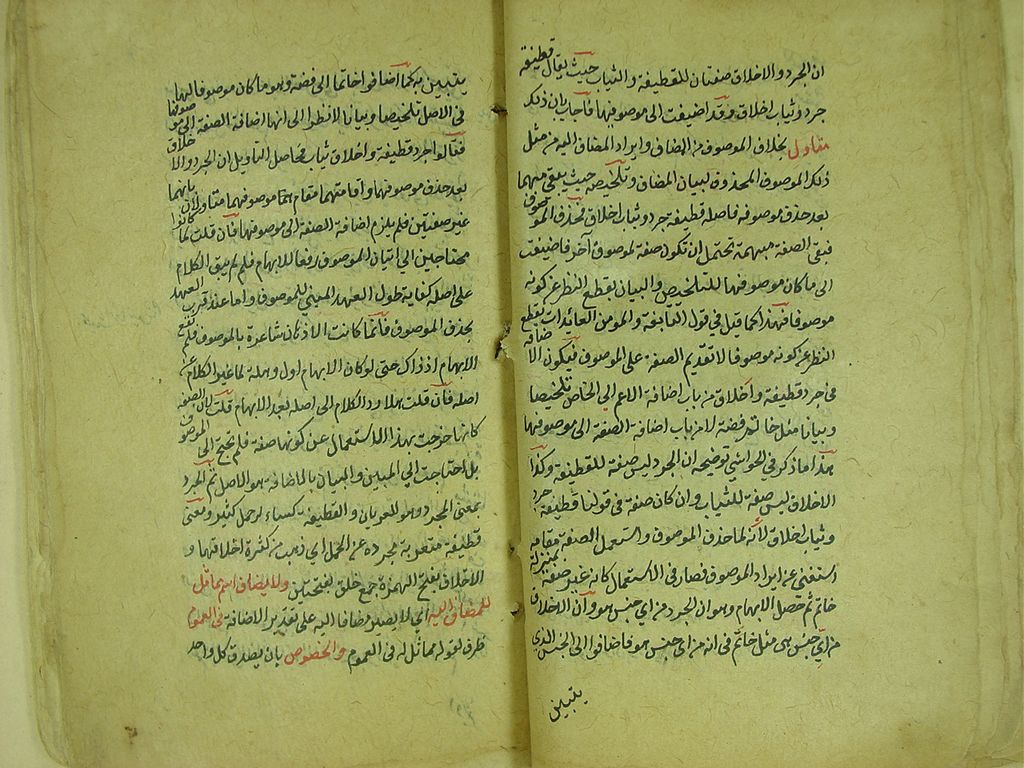 ان الجرد والاخلاق صفتان للقطيفة والثياب حيث يقال قطيفة
جرد وثياب اخلاق وقد اضيفت الى موصوفها فاجاب بان ذلك
متاول بخلاف الموصوف من المضاف وايراد المضاف اليه من مثل
ذلك الموصوف المحذوف لبيان المضاف وتلخيصه حيث يبقى مبهما
بعد حذف موصوفه فاصله قطيفة جرد وثياب اخلاق فحذف الموصوف
فبقى الصفة مبهمة تحتمل ان تكون صفة لموصوف آخر فاضيفت
الى ما كان موصوفها للتلخيص والبيان بقطع النظر عن كونه
موصوفا فهذا كما قيل فى قوله والمؤمن العائذات بقطع
النظر عن كونه موصوفا لا تقديم الصفة على الموصوف فيكون الاضافة
فى جرد قطيفة واخلاق من باب اضافة الاعم الى الخاص تلخيصا
وبيانا مثل خاتم فضة لا من باب اضافة الصفة الى موصوفها
هذا ما ذكر فى الحواشي توضيحه ان الجرد ليس صفة للقطيفة وكذا
الاخلاق ليس صفة للثياب وان كان صفة فى قولنا قطيفة جرد
وثياب اخلاق لانه لما حذف الموصوف واستعمل الصفة مقامه
استغنى عن ايراد الموصوف فصار فى الاستعمال كانه غير صفة بمنزلة
خاتم ثم حصل الابهام وهو ان الجرد من اي جنس هو وان الاخلاق
من اي جنس هى مثل خاتم فى انه من اي جنس هو فاضافوا الى الجنس الذي
يتبين
يتبين به كما اضافوا خاتما الى فضة وهو ما كان موصوفا لهما
فى الاصل تلخيصا وبيانا لا نظرا الى انها اضافة الصفة الى موصوفها
فقالوا جرد قطيفة واخلاق ثياب فحاصل التاويل ان الجرد والاخلاق
بعد حذف موصوفهما واقامتهما مقام موصوفهما متاولان بانهما
غير صفتين فلم يلزم اضافة الصفة الى موصوفها فان قلت لما كانوا
محتاجين الى اتيان الموصوف رفعا للابهام فلم لم يبق الكلام
على اصله كفاية طول العهد المبني للموصوف واما عند قرب العهد
بحذف الموصوف فانما كانت الاذهان شاعرة بالموصوف فلم يقع
الابهام اذ ذاك حتى لو كان الابهام اول وهلة لما غير الكلام عن
اصله فان قلت هلا رد الكلام الى اصله بعد الابهام قلت لان الصفة
كانها خرجت بهذا الاستعمال عن كونها صفة فلم تحتج الى الموصوف
بل احتاجت الى المبين والبيان بالاضافة هو الاصل ثم الجرد
بمعنى المجرد وهو العريان والقطيفة كساء له خمل كثير ومعنى
قطيفة متعرية مجردة عن الخمل اي ذهب من كثرة اخلاقها و
الاخلاق بفتح الهمزة جمع خلق بفتحتين ولا يضاف اسم مماثل
للمضاف اليه اي لا يصير مضافا اليه على تقدير الاضافة فى العموم
ظرف لقوله مماثل له فى العموم والخصوص بان يصدق كل واحد